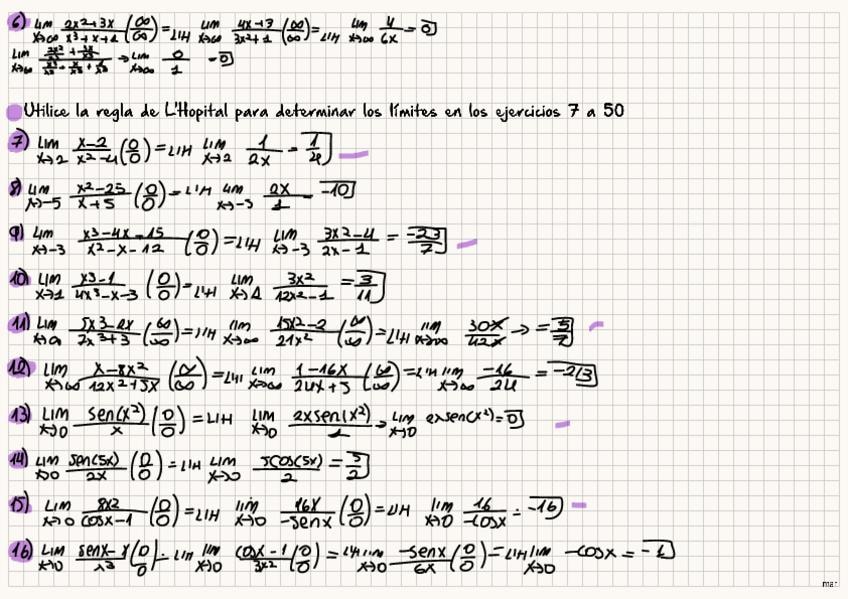 6) lim x→∞ 2x²+3x / x³+x+1 (∞/∞) = LH lim x→∞ 4x+3 / 3x²+1 (∞/∞) = LH lim x→∞ 4/6x = 0
lim x→∞ → lim x→∞ 0/1 = 0
Utilice la regla de L'Hopital para determinar los límites en los ejercicios 7 a 50
7) lim x→2 x-2 / x²-4 (0/0) = LIH lim x→2 1/2x = 1/4
8) lim x→-5 x²-25 / x+5 (0/0) = LIH lim x→-5 2x/1 = -10
9) lim x→-3 x3-4x-15 / x²-x-12 (0/0) = LIH lim x→-3 3x²-4 / 2x-1 = -23/7
10) lim x→1 x3-1 / 4x³-x-3 (0/0) = LIH lim x→1 3x² / 12x²-1 = 3/11
11) lim x→∞ 5x3-2x / 7x³+3 (∞/∞) = LIH lim x→∞ 15x²-2 / 21x² (∞/∞) = LIH lim x→∞ 30x/42x → = 5/7
12) lim x→∞ x-8x² / 12x²+5x (∞/∞) = LIH lim x→∞ 1-16x / 24x+5 (∞/∞) = LIH lim x→∞ -16/24 = -2/3
13) lim x→0 sen(x²) / x (0/0) = LIH lim x→0 2xsen(x²) / 1 → lim x→0 2xsen(x²) = 0
14) lim x→0 sen(5x) / 2x (0/0) = LIH lim x→0 5cos(5x) / 2 = 5/2
15) lim x→0 8x2 / cosx-1 (0/0) = LIH lim x→0 16x / -senx (0/0) = LIH lim x→0 16 / -cosx = -16
16) lim x→0 senx-x / x3 (0/0) = LIH lim x→0 cosx-1 / 3x² (0/0) = LIH lim x→0 -senx / 6x (0/0) = LIH lim x→0 -cosx =
mar